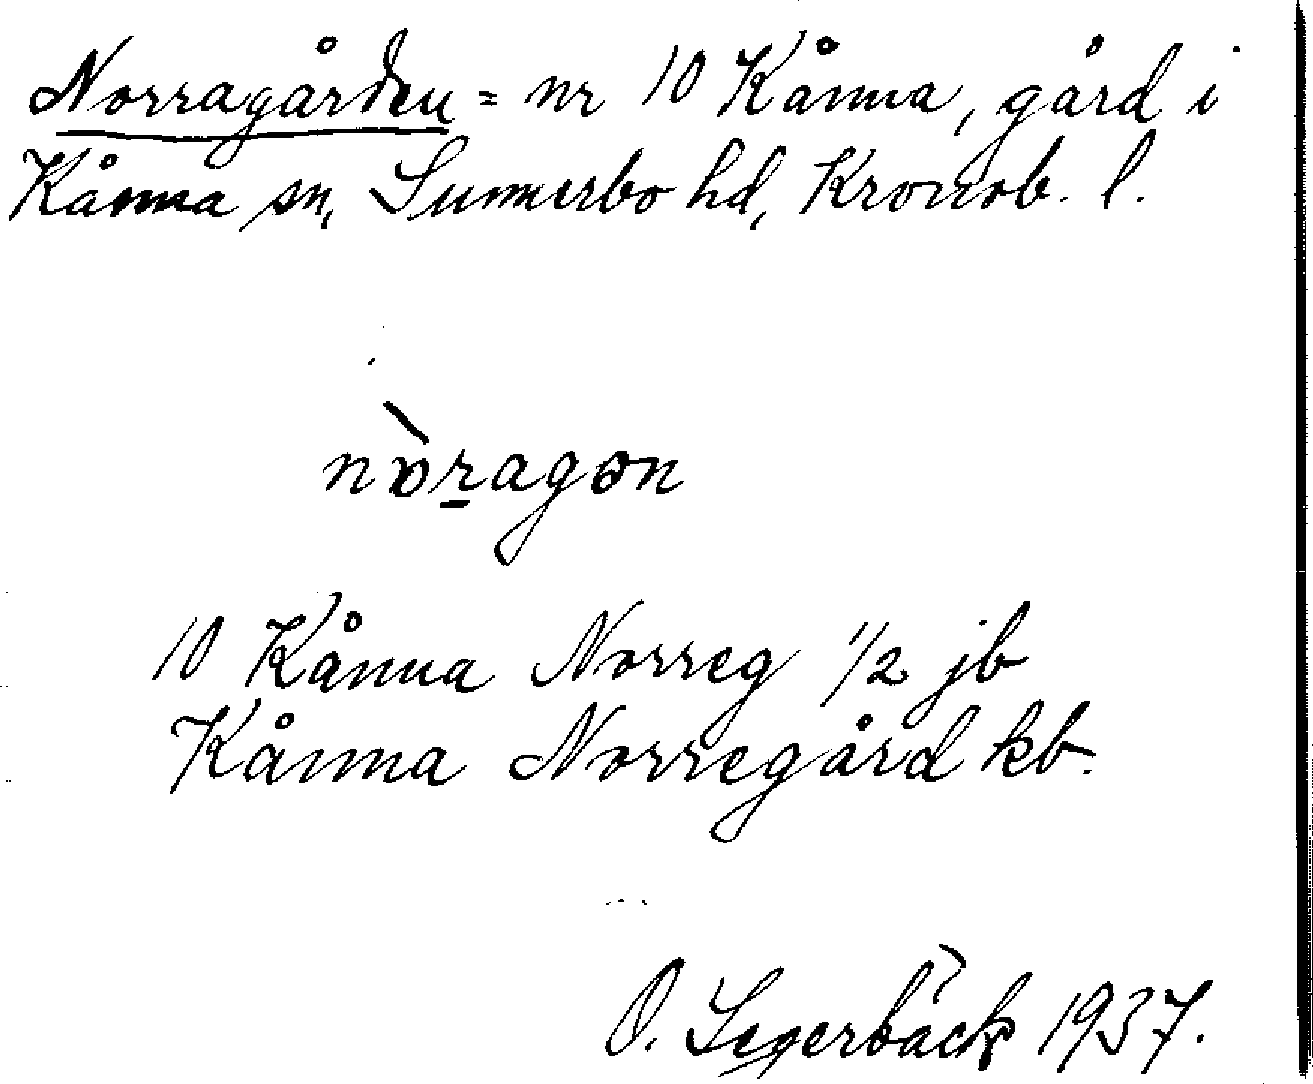 Norragården = nr 10 Kånna, gård i
Kånna sn, Sunnerbo hd, Kronob. l.
nòragɔn
10 Kånna Norreg 1/2 jb
Kånna Norregård kb.
O. Segerbäck 1937.